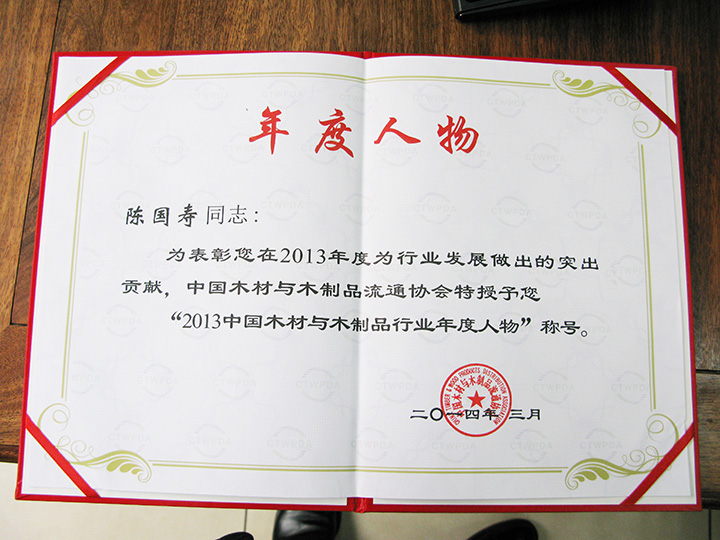 年度人物
陈国寿同志：
为表彰您在2013年度为行业发展做出的突出
贡献，中国木材与木制品流通协会特授予您
“2013中国木材与木制品行业年度人物”称号。
中国木材与木制品流通协会
CHINA TIMBER & WOOD PRODUCTS DISTRIBUTION ASSOCIATION
二〇一四年 三月
CTWPDA